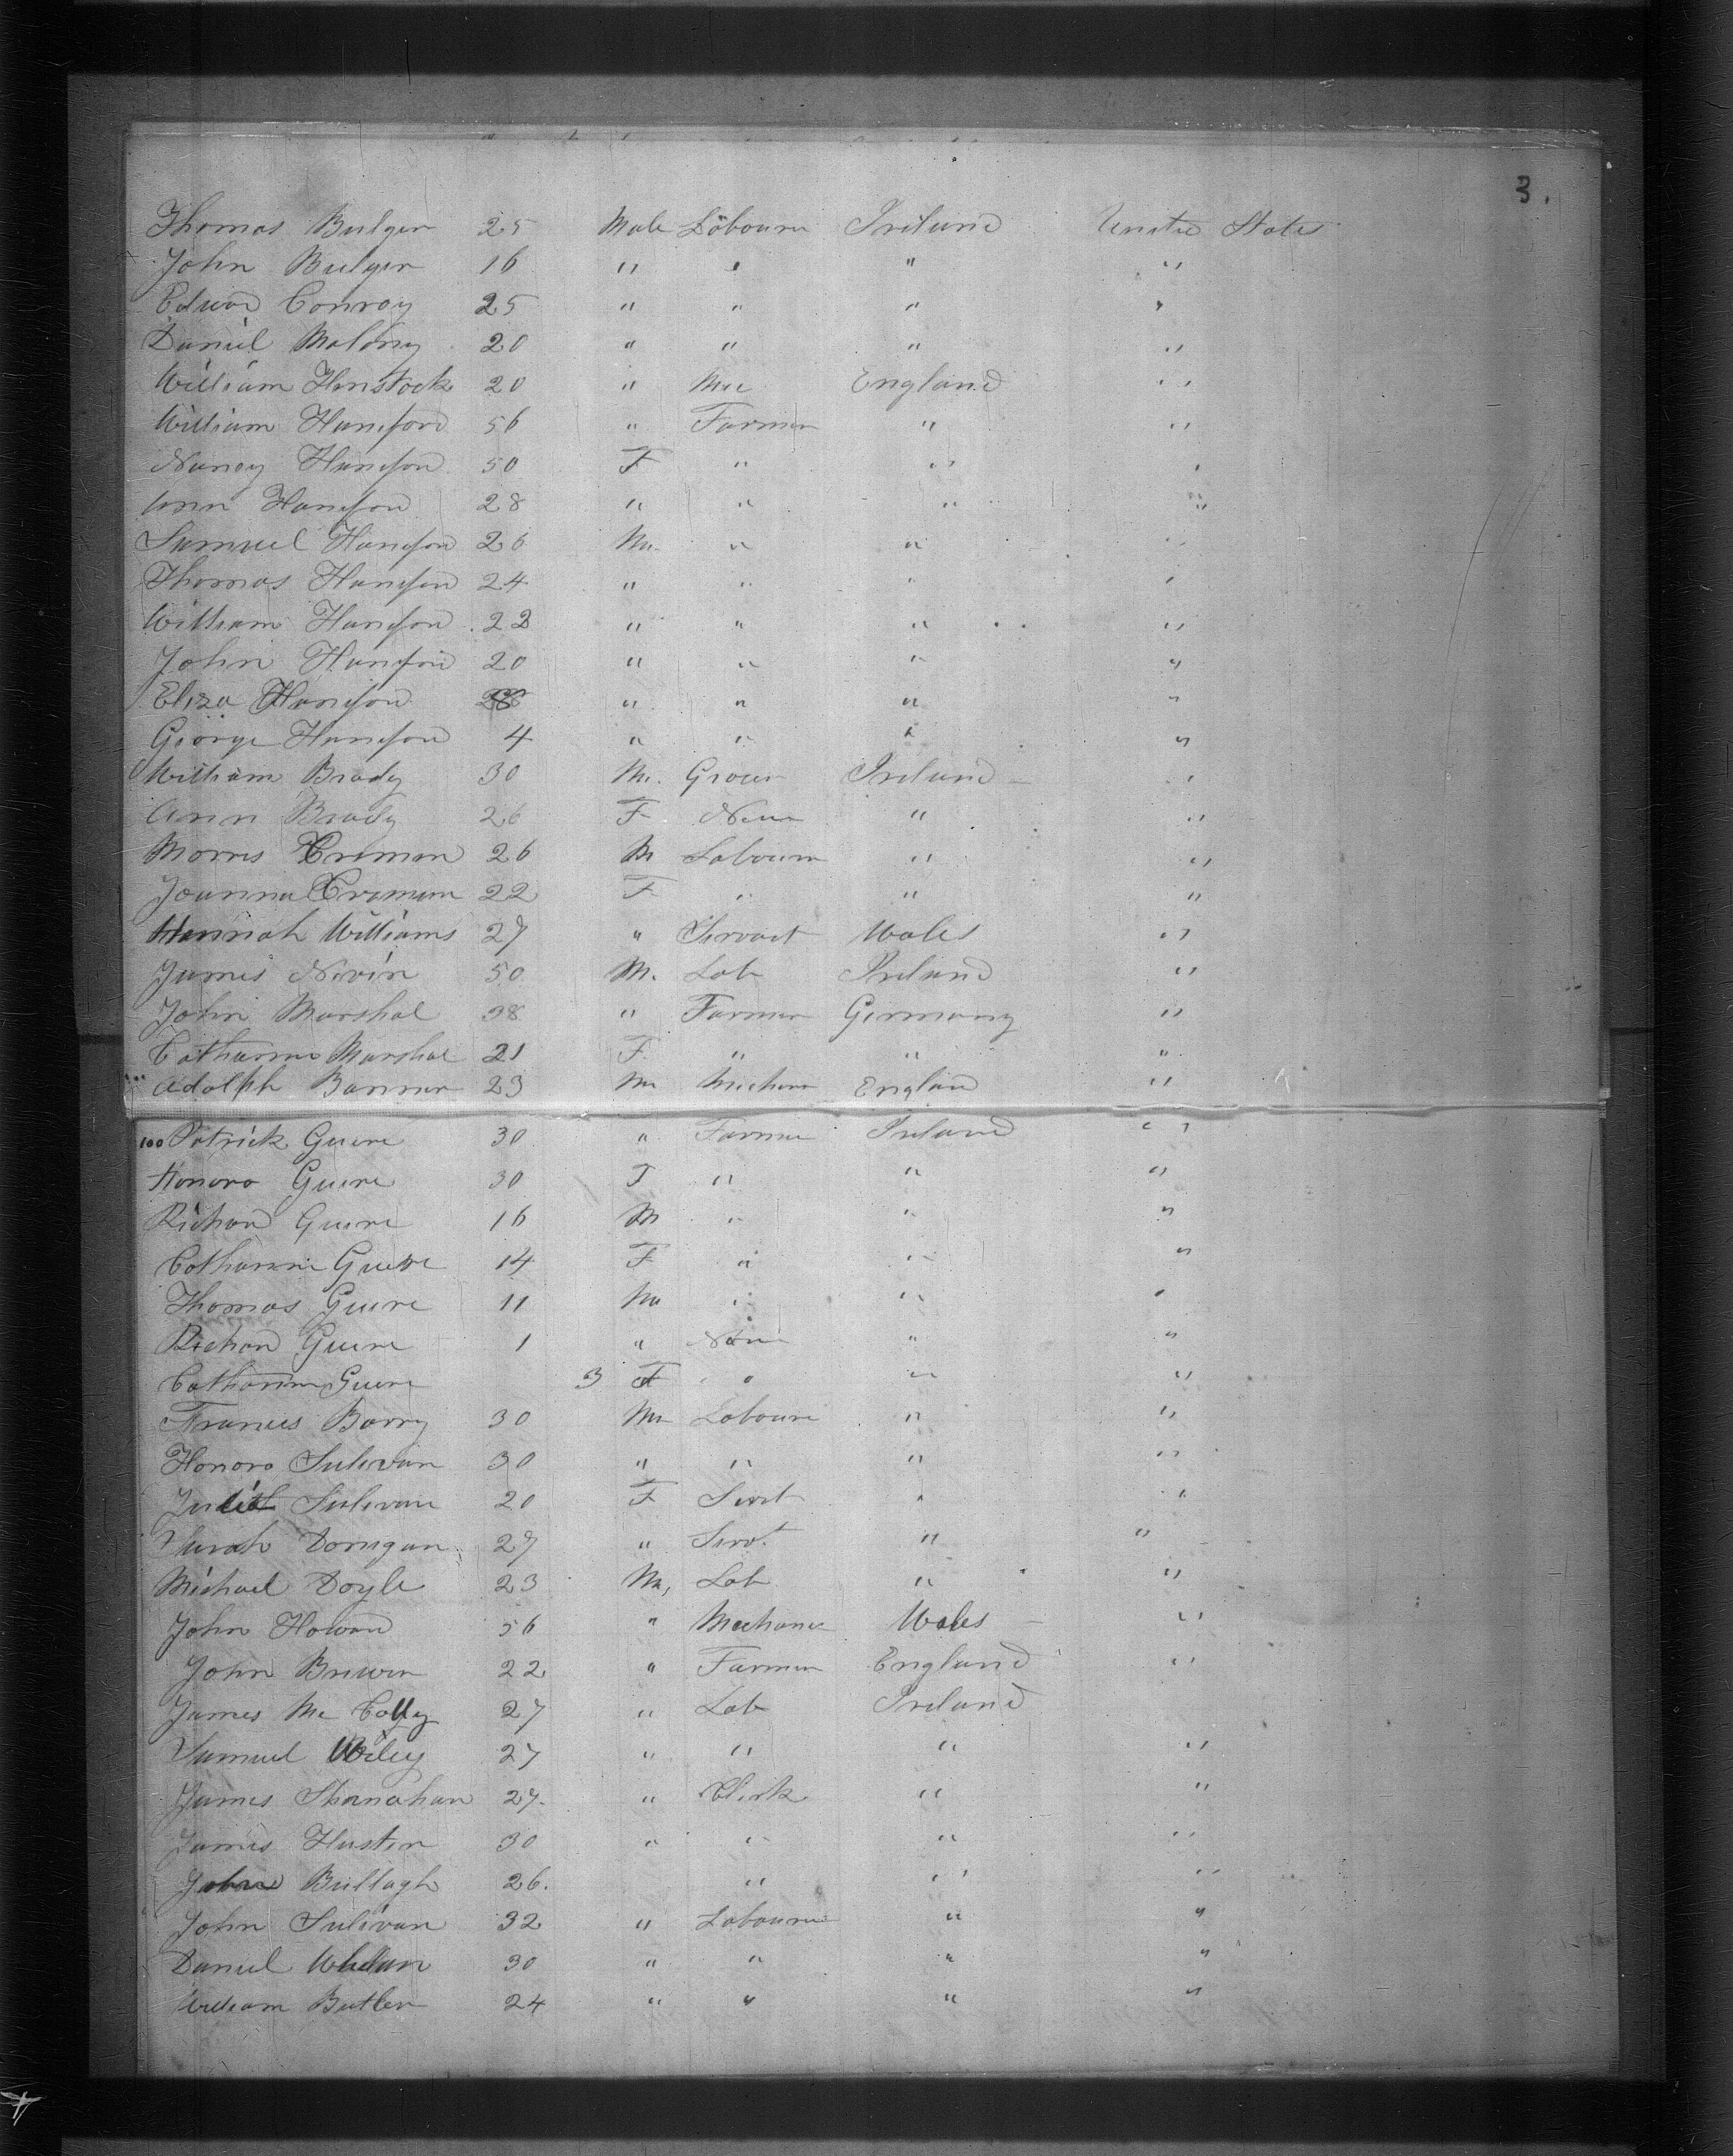 3.
Thomas Bulger 25 Male Labourer Ireland United States
John Bulger 16 " " " "
Edward Conroy 25 " " " "
Daniel Malony 20 " " " "
William Henstock 20 " Mec England "
William Hansford 56 " Farmer " "
Nancy Hansford 50 F " " "
Ann Hansford 28 " " " "
Samuel Hansford 26 Ma " " "
Thomas Hansford 24 " " " "
William Hansford 22 " " " "
John Hansford 20 " " " "
Eliza Hansford " " " "
George Hansford 4 " " " "
William Brady 30 M. Grocer Ireland "
Ann Brady 26 F None " "
Morris Cremen 26 M Labourer " "
Joanna Cremen 22 F " " "
Hannah Williams 27 " Servant Wales "
James Nevin 50 M. Lab Ireland "
John Marshal 38 " Farmer Germany "
Catharine Marshal 21 F " " "
Adolph Banner 23 Ma England "
100 Patrick Guere 30 " Farmer Ireland "
Honora Guere 30 F " " "
Richard Guere 16 M " " "
Catharine Guere 14 F " " "
Thomas Guere 11 Ma " " "
Richard Guere 1 " None " "
Catharine Guere 3 F " " "
Francis Barry 30 Ma Labourer " "
Honora Sulivan 30 " " " "
Judith Sulivan 20 F Servt " "
Sarah Donigan 27 " Servt " "
Michael Doyle 23 Ma, Lab " "
John Howard 56 " Mechanic Wales "
John Brewer 22 " Farmer England "
James Mc Colly 27 " Lab Ireland
Samuel Wiley 27 " " " "
James Shanahan 27. " Clerk " "
James Husten 30 " " " "
Bullagh 26. " " "
John Sulivan 32 " Labourer " "
Daniel Whelan 30 " " " "
William Butler 24 " " " "